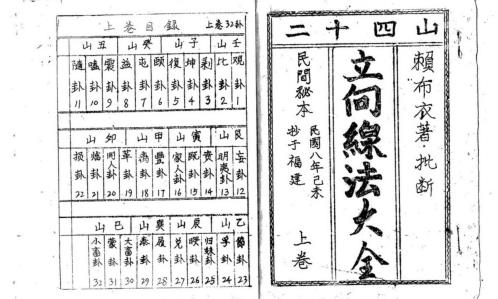 二十四山
賴布衣著·批断
立向線法大全
民間秘本
民國八年己未
抄于福建
上卷
上卷目録
上卷32卦
壬山 子山 癸山 丑山
观卦1
比卦2
剥卦3
坤卦4
復卦5
頤卦6
屯卦7
益卦8
震卦9
噬卦10
隨卦11
艮山 寅山 甲山 卯山
妄卦12
明夷卦13
賁卦14
既卦15
家人卦16
豐卦17
卦18
革卦19
同人卦20
卦21
损卦22
乙山 辰山 巽山 巳山
節卦23
孚卦24
归妹卦25
睽卦26
兑卦27
履卦28
泰卦29
大畜卦30
卦31
小畜卦32